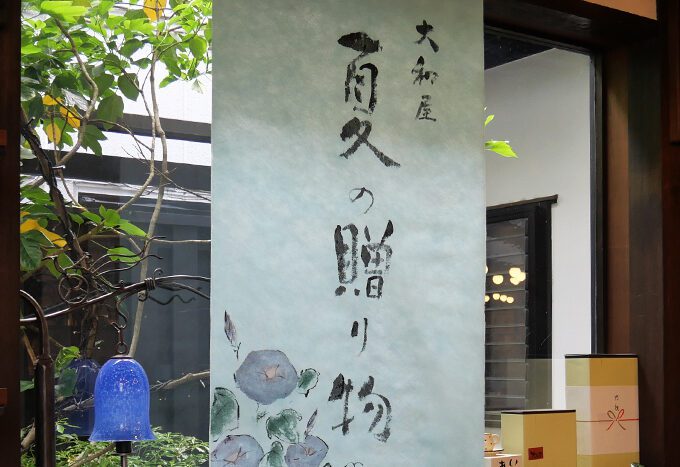 大和屋
夏の贈り物